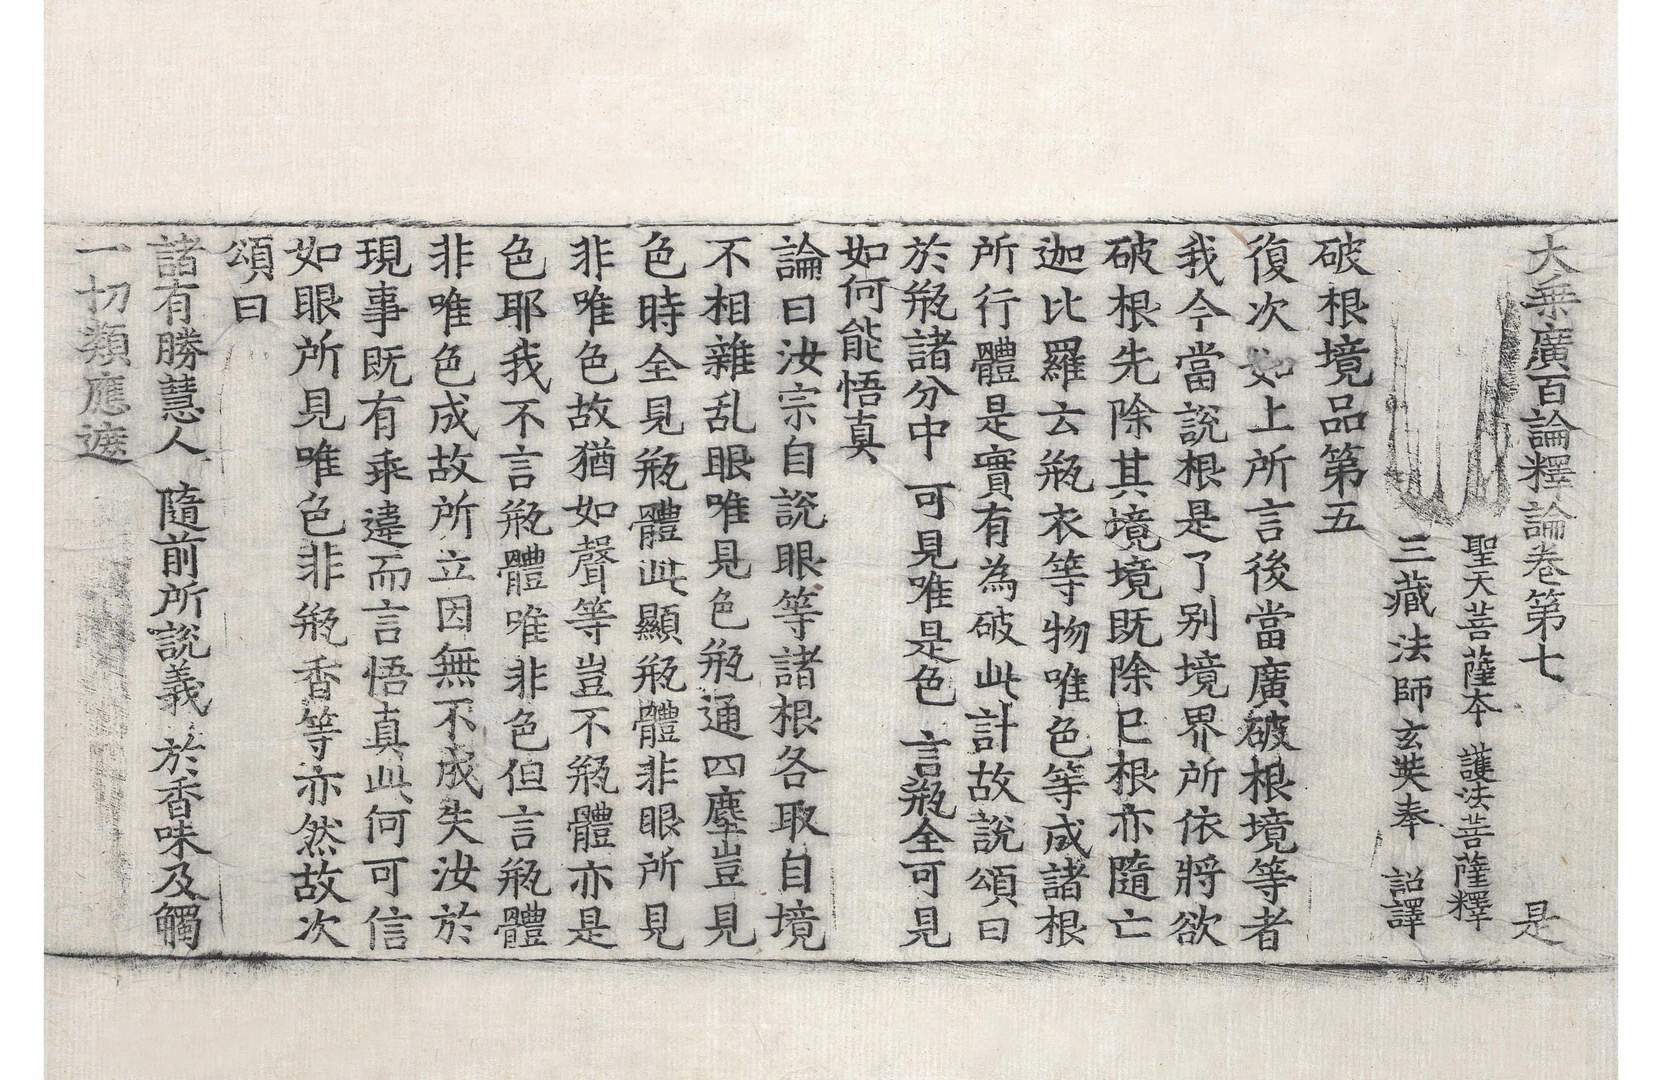 大乗廣百論釋論卷第七　是
聖天菩薩本　護法菩薩釋
三藏法師玄奘奉　詔譯
破根境品第五
復次如上所言後當廣破根境等者
我今當說根是了别境界所依將欲
破根先除其境境既除已根亦隨亡
迦比羅云瓶衣等物唯色等成諸根
所行體是實有為破此計故說頌曰
於瓶諸分中　可見唯是色　言瓶全可見
如何能悟真
論曰汝宗自說眼等諸根各取自境
不相雜乱眼唯見色瓶通四塵豈見
色時全見瓶體此顯瓶體非眼所見
非唯色故猶如聲等豈不瓶體亦是
色耶我不言瓶體唯非色但言瓶體
非唯色成故所立因無不成失汝於
現事既有乖違而言悟真此何可信
如眼所見唯色非瓶香等亦然故次
頌曰
諸有勝慧人　隨前所說義　於香味及觸
一切類應遮